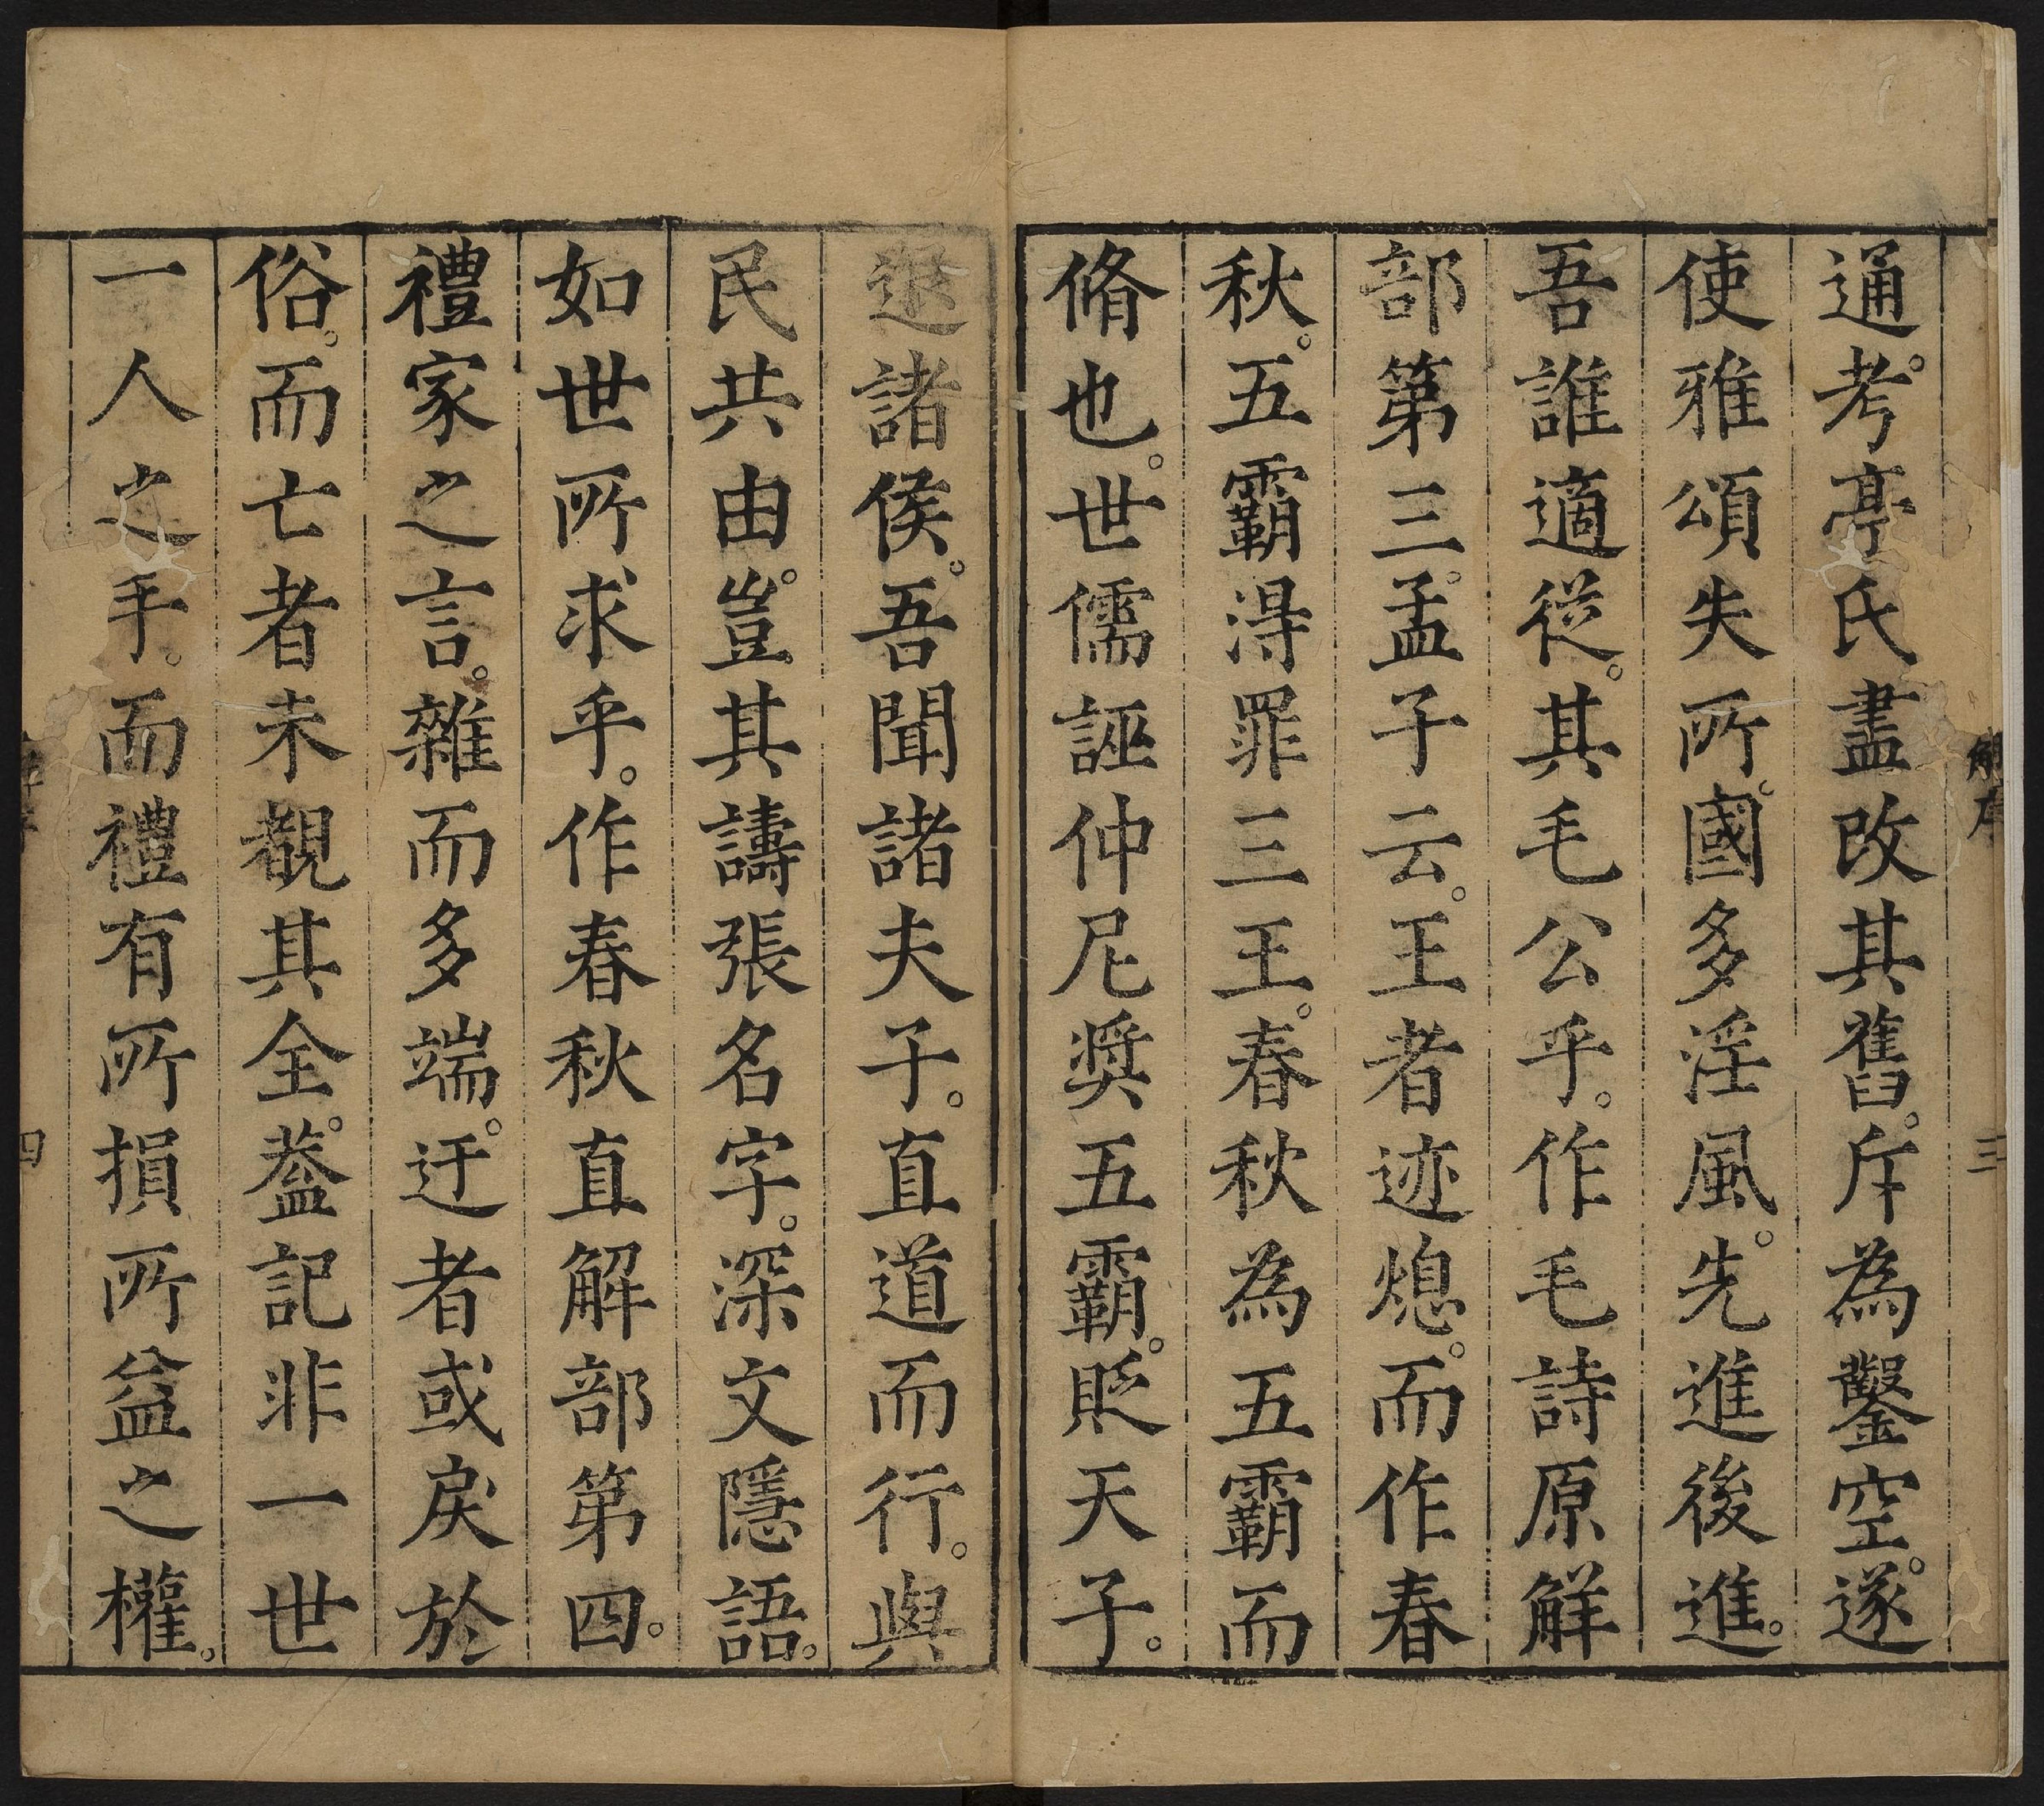 通。考亭氏盡改其舊。斥為鑿空。遂
使雅頌失所。國多淫風。先進後進。
吾誰適從。其毛公乎。作毛詩原解
部第三。孟子云。王者迹熄。而作春
秋。五霸淂罪三王。春秋為五霸而
脩也。世儒誣仲尼奨五霸。貶天子。
退諸侯。吾聞諸夫子。直道而行。與
民共由。豈其譸張名字。深文隱語。
如世所求乎。作春秋直解部第四。
禮家之言。雜而多端。迂者或戾於
俗。而亡者未覩其全。葢記非一世
一人之手。而禮有所損所益之權。
三
四